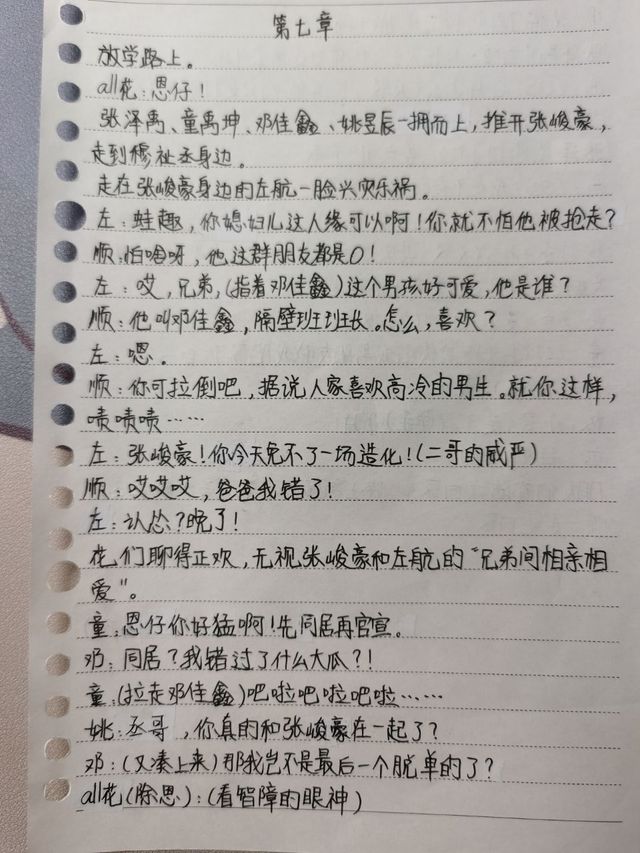 第七章
放学路上。
all花:恩仔!
张泽禹、童禹坤、邓佳鑫、姚昱辰一拥而上,推开张峻豪,
走到穆祉丞身边。
走在张峻豪身边的左航一脸兴灾乐祸。
左:蛙趣,你媳妇儿这人缘可以啊!你就不怕他被抢走?
顺:怕啥呀,他这群朋友都是0!
左:哎,兄弟,(指着邓佳鑫)这个男孩好可爱,他是谁?
顺:他叫邓佳鑫,隔壁班班长。怎么,喜欢?
左:嗯。
顺:你可拉倒吧,据说人家喜欢高冷的男生。就你这样,
啧啧啧……
左:张峻豪!你今天免不了一场造化!(二哥的威严)
顺:哎哎哎,爸爸我错了!
左:认怂?晚了!
花们聊得正欢,无视张峻豪和左航的“兄弟间相亲相
爱”。
童:恩仔你好猛啊!先同居再官宣。
邓:同居?我错过了什么大瓜?!
童:(拉走邓佳鑫)吧啦吧啦吧啦……
姚:丞哥,你真的和张峻豪在一起了?
邓:(又凑上来)那我岂不是最后一个脱单的了?
all花(除恩):(看智障的眼神)